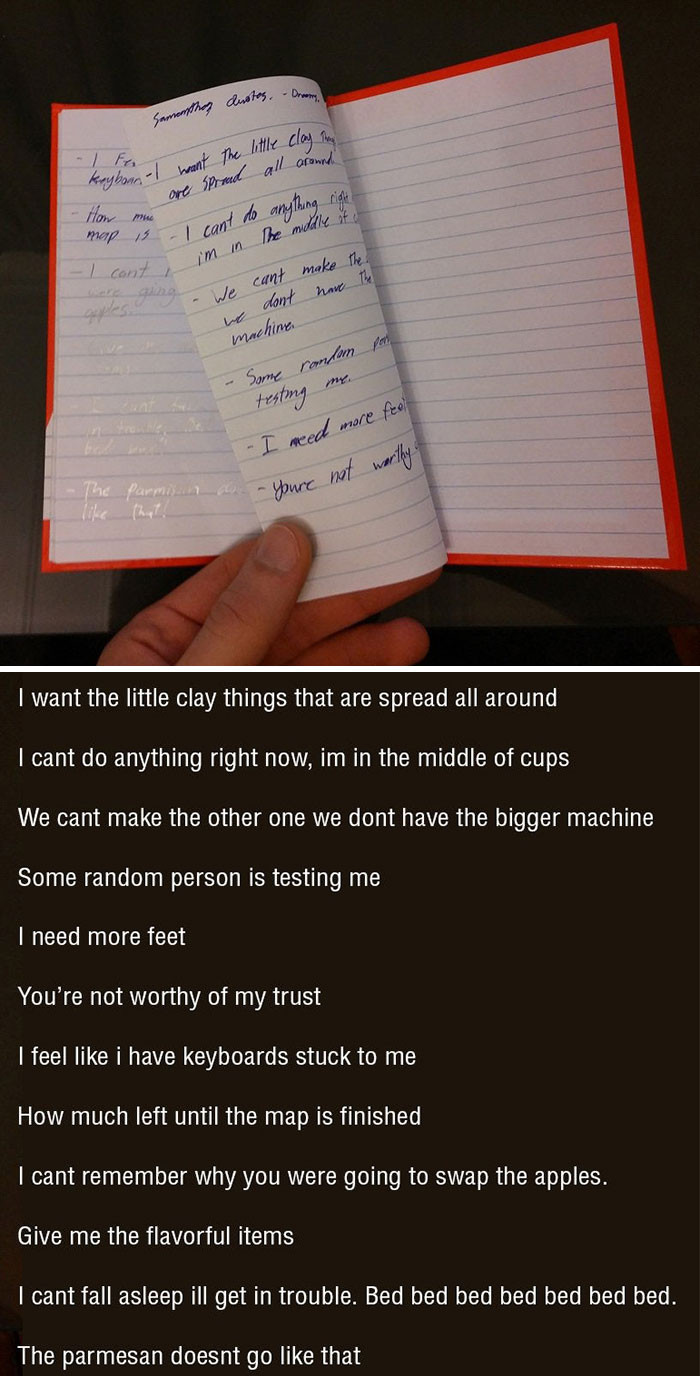 Samanthas Quotes. - Dreams.
- I want The little clay Thing
are spread all around
- I cant do anything right
im in The middle of
- We cant make The
we dont have The
machine.
- Some random per
testing me.
- I need more feet
- Youre not worthy
- I Fe
keyboar
- How muc
map is
- I cant r
were going
apples.
- The Parmisan
like That!
I want the little clay things that are spread all around
I cant do anything right now, im in the middle of cups
We cant make the other one we dont have the bigger machine
Some random person is testing me
I need more feet
You’re not worthy of my trust
I feel like i have keyboards stuck to me
How much left until the map is finished
I cant remember why you were going to swap the apples.
Give me the flavorful items
I cant fall asleep ill get in trouble. Bed bed bed bed bed bed bed.
The parmesan doesnt go like that